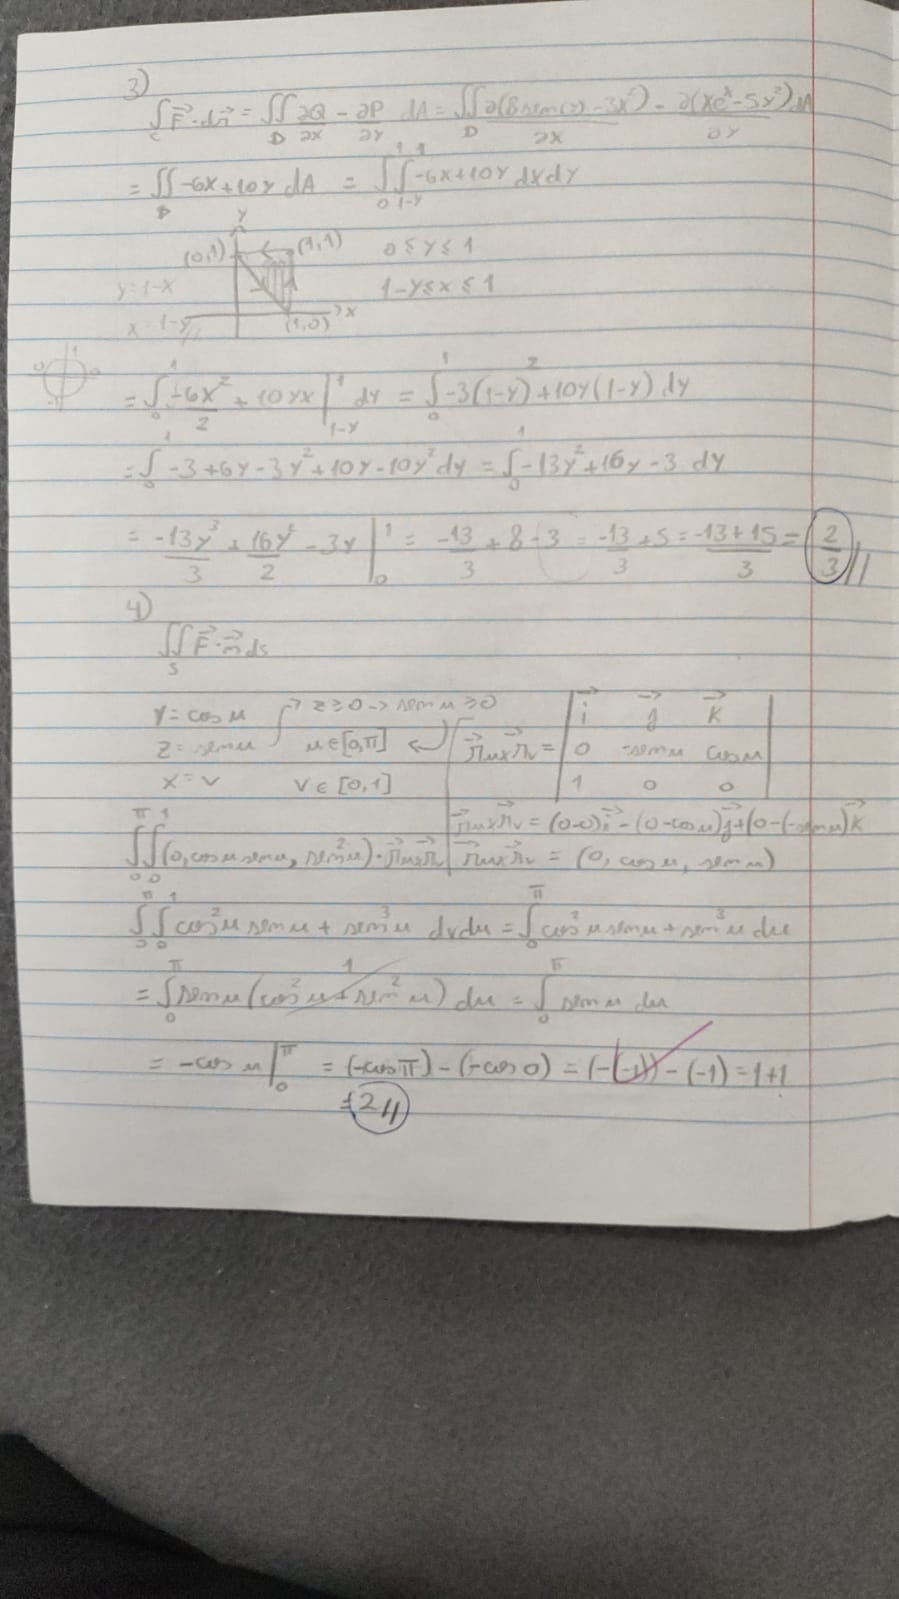 3)
∫_C F⃗·dr⃗ = ∬_D ∂Q/∂x - ∂P/∂y dA = ∬_D ∂(8sen(y) - 3x²)/∂x - ∂(xe^x - 5y²)/∂y dA
= ∬_D -6x + 10y dA = ∫_0^1 ∫_{1-y}^1 -6x + 10y dx dy
y
(0,1) (1,1) 0 ≤ y ≤ 1
y = 1-x 1-y ≤ x ≤ 1
x = 1-y // (1,0) x
= ∫_0^1 -6x²/2 + 10yx |_{1-y}^1 dy = ∫_0^1 -3(1-y)² + 10y(1-y) dy
= ∫_0^1 -3 + 6y - 3y² + 10y - 10y² dy = ∫_0^1 -13y² + 16y - 3 dy
= -13y³/3 + 16y²/2 - 3y |_0^1 = -13/3 + 8 - 3 = -13/3 + 5 = (-13+15)/3 = 2/3 //
4)
∬_S F⃗·n⃗ ds
y = cos u → z ≥ 0 → sen u ≥ 0
z = sen u u ∈ [0,π]
x = v v ∈ [0,1]
r⃗u x r⃗v = | i⃗ j⃗ k⃗ |
| 0 -sen u cos u |
| 1 0 0 |
r⃗u x r⃗v = (0-0)i⃗ - (0-cos u)j⃗ + (0-(-sen u))k⃗
r⃗u x r⃗v = (0, cos u, sen u)
∫_0^π ∫_0^1 (0, cos u sen u, sen²u)·r⃗u x r⃗v
∫_0^π ∫_0^1 cos²u sen u + sen³u dv du = ∫_0^π cos²u sen u + sen³u du
= ∫_0^π sen u (cos²u + sen²u) du = ∫_0^π sen u du
1
= -cos u |_0^π = (-cos π) - (-cos 0) = (-(-1)) - (-1) = 1+1
= 2 //